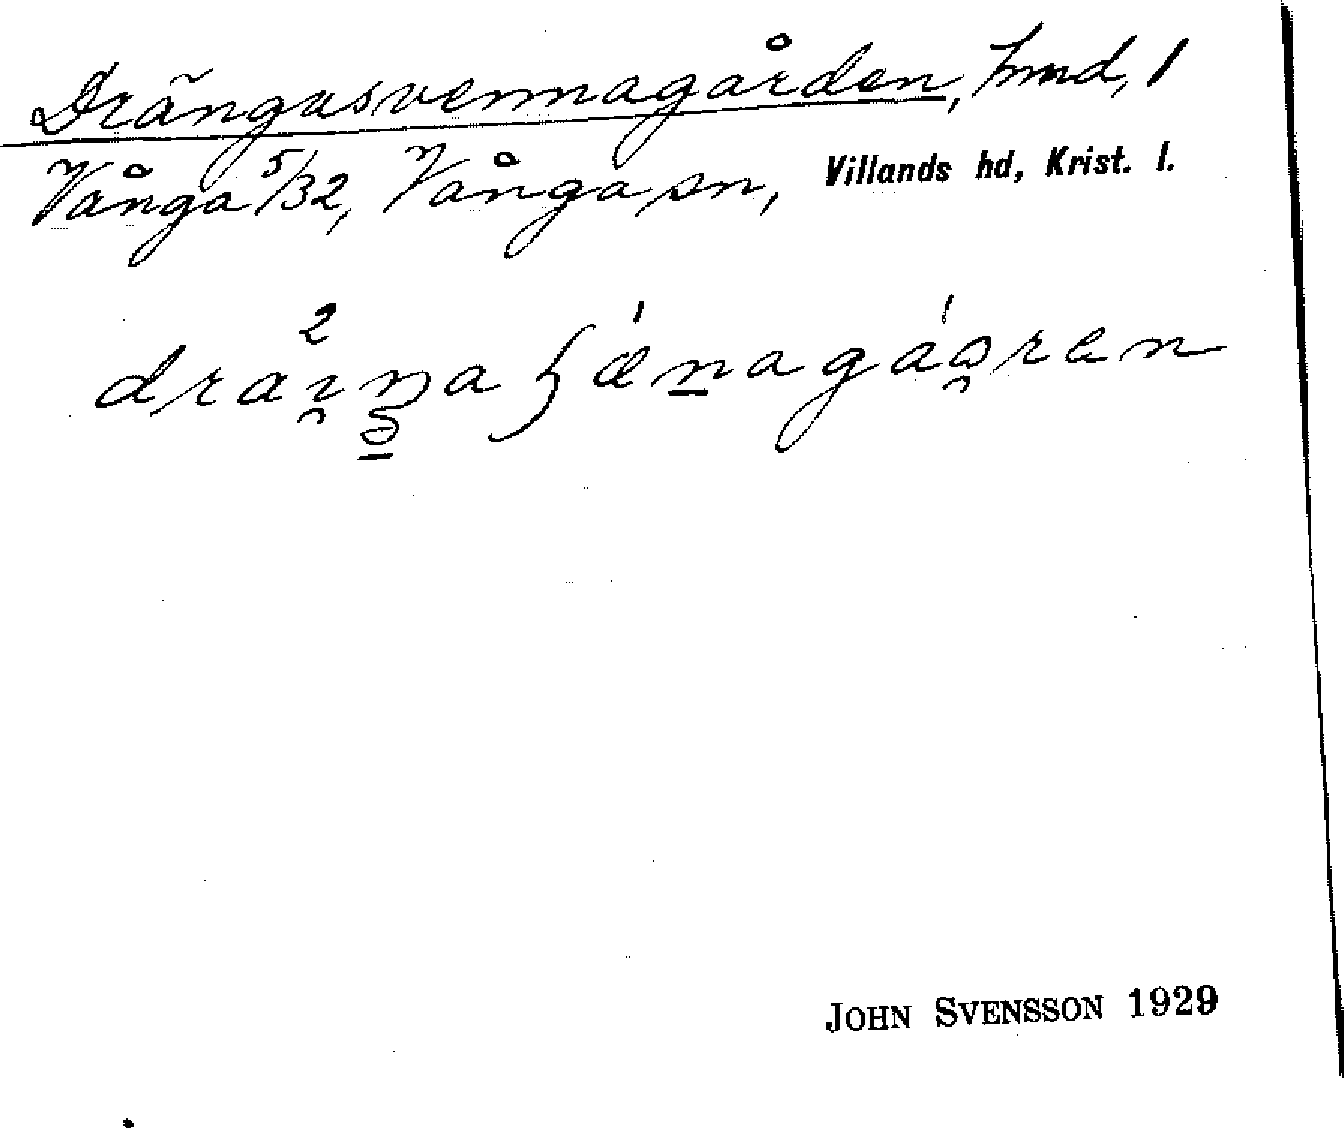 Drängasvennagården, hmd, 1
Vånga 5/32, Vånga sn, Villands hd, Krist. l.
JOHN SVENSSON 1929